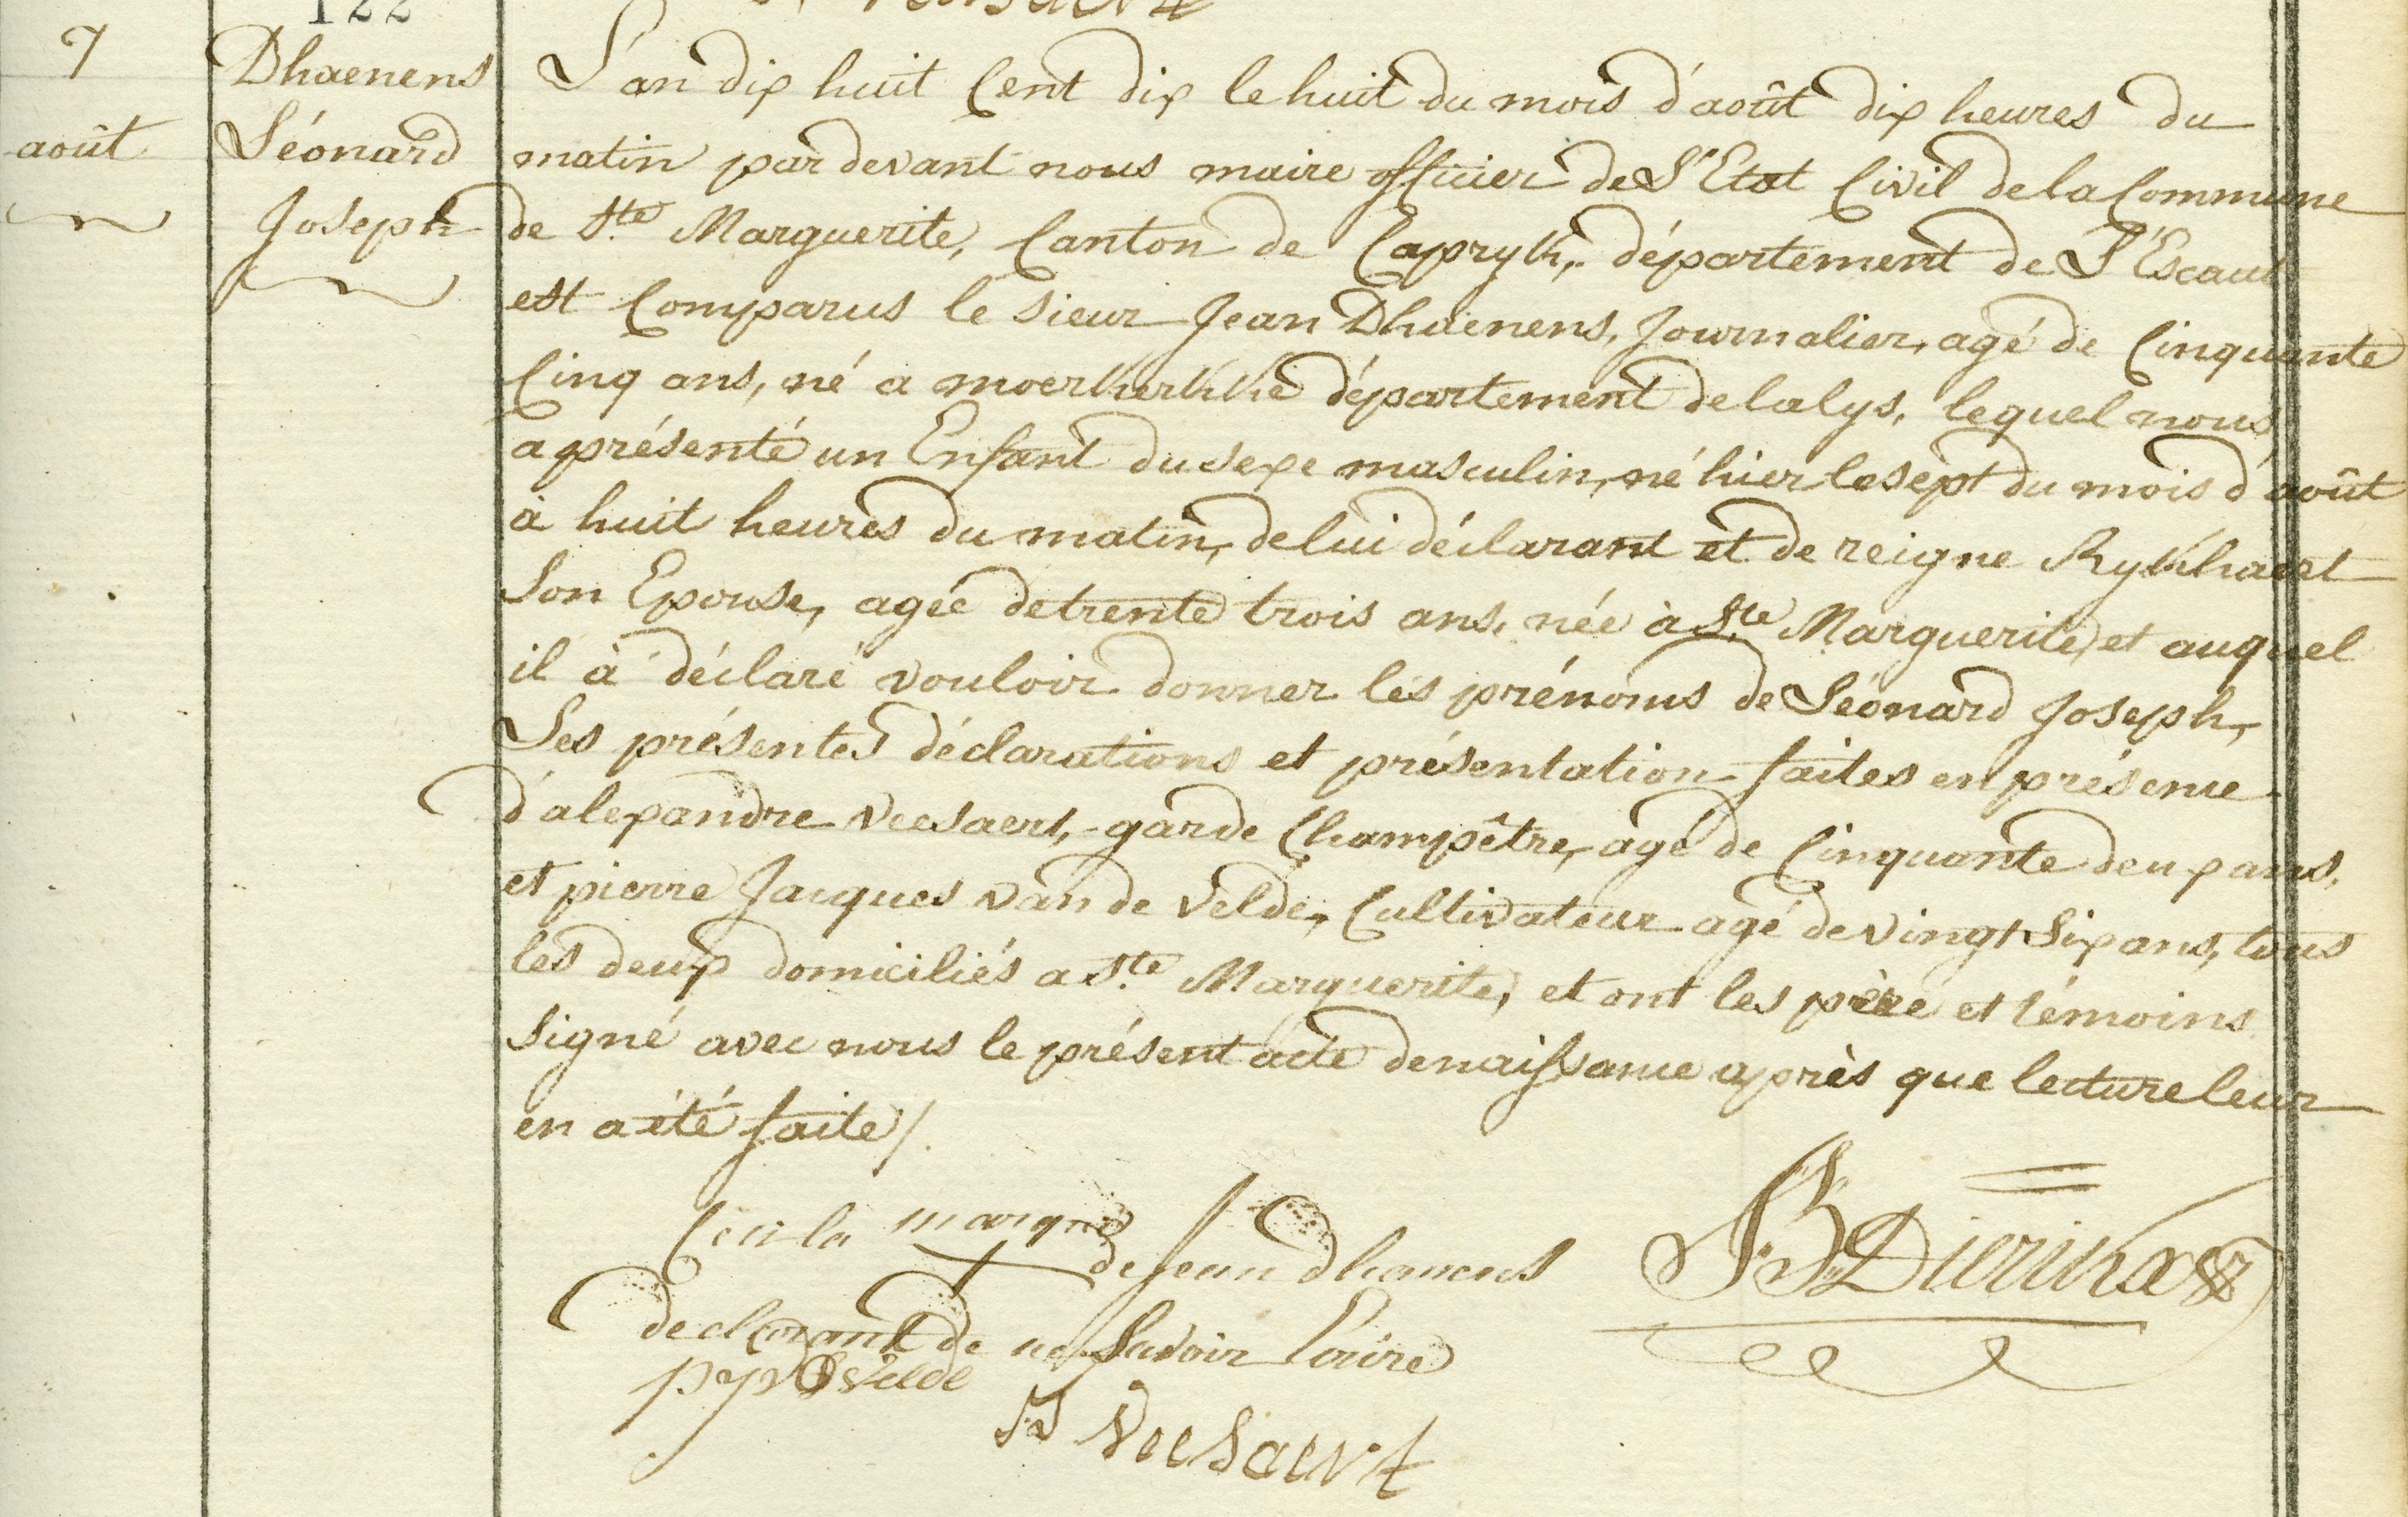 122
7
août
Dhaenens
Léonard
Joseph
L'an dix huit Cent dix le huit du mois d'août dix heures du
matin par devant nous maire officier de L'Etat Civil de la Commune
de Ste Marguerite, Canton de Capryk, département de L'Escaut
est Comparus le sieur Jean Dhaenens, Journalier, agé de Cinquante
Cinq ans, né a moerkerkke département de la lys, lequel nous
a présenté un Enfant du sexe masculin, né hier le sept du mois d'août
à huit heures du matin, de lui déclarant et de reigne Rykhaert
Son Epouse, agée de trente trois ans, née à Ste Marguerite, et auquel
il à déclaré vouloir donner les prénoms de Léonard Joseph,
Les présentes déclarations et présentation faites en présence
d'alexandre veesaert, garde Champêtre, agé de Cinquante deux ans,
et pierre Jacques van de velde, Cultivateur agé de vingt Six ans, tous
les deux domiciliés a Ste Marguerite, et ont les père et témoins
Signé avec nous le présent acte de naissance après que lecture leur
en a été faite /.
Ceci la marque de Jean dhaenens
declarant de ne Savoir Ecrire
p j v d velde
Veesaert